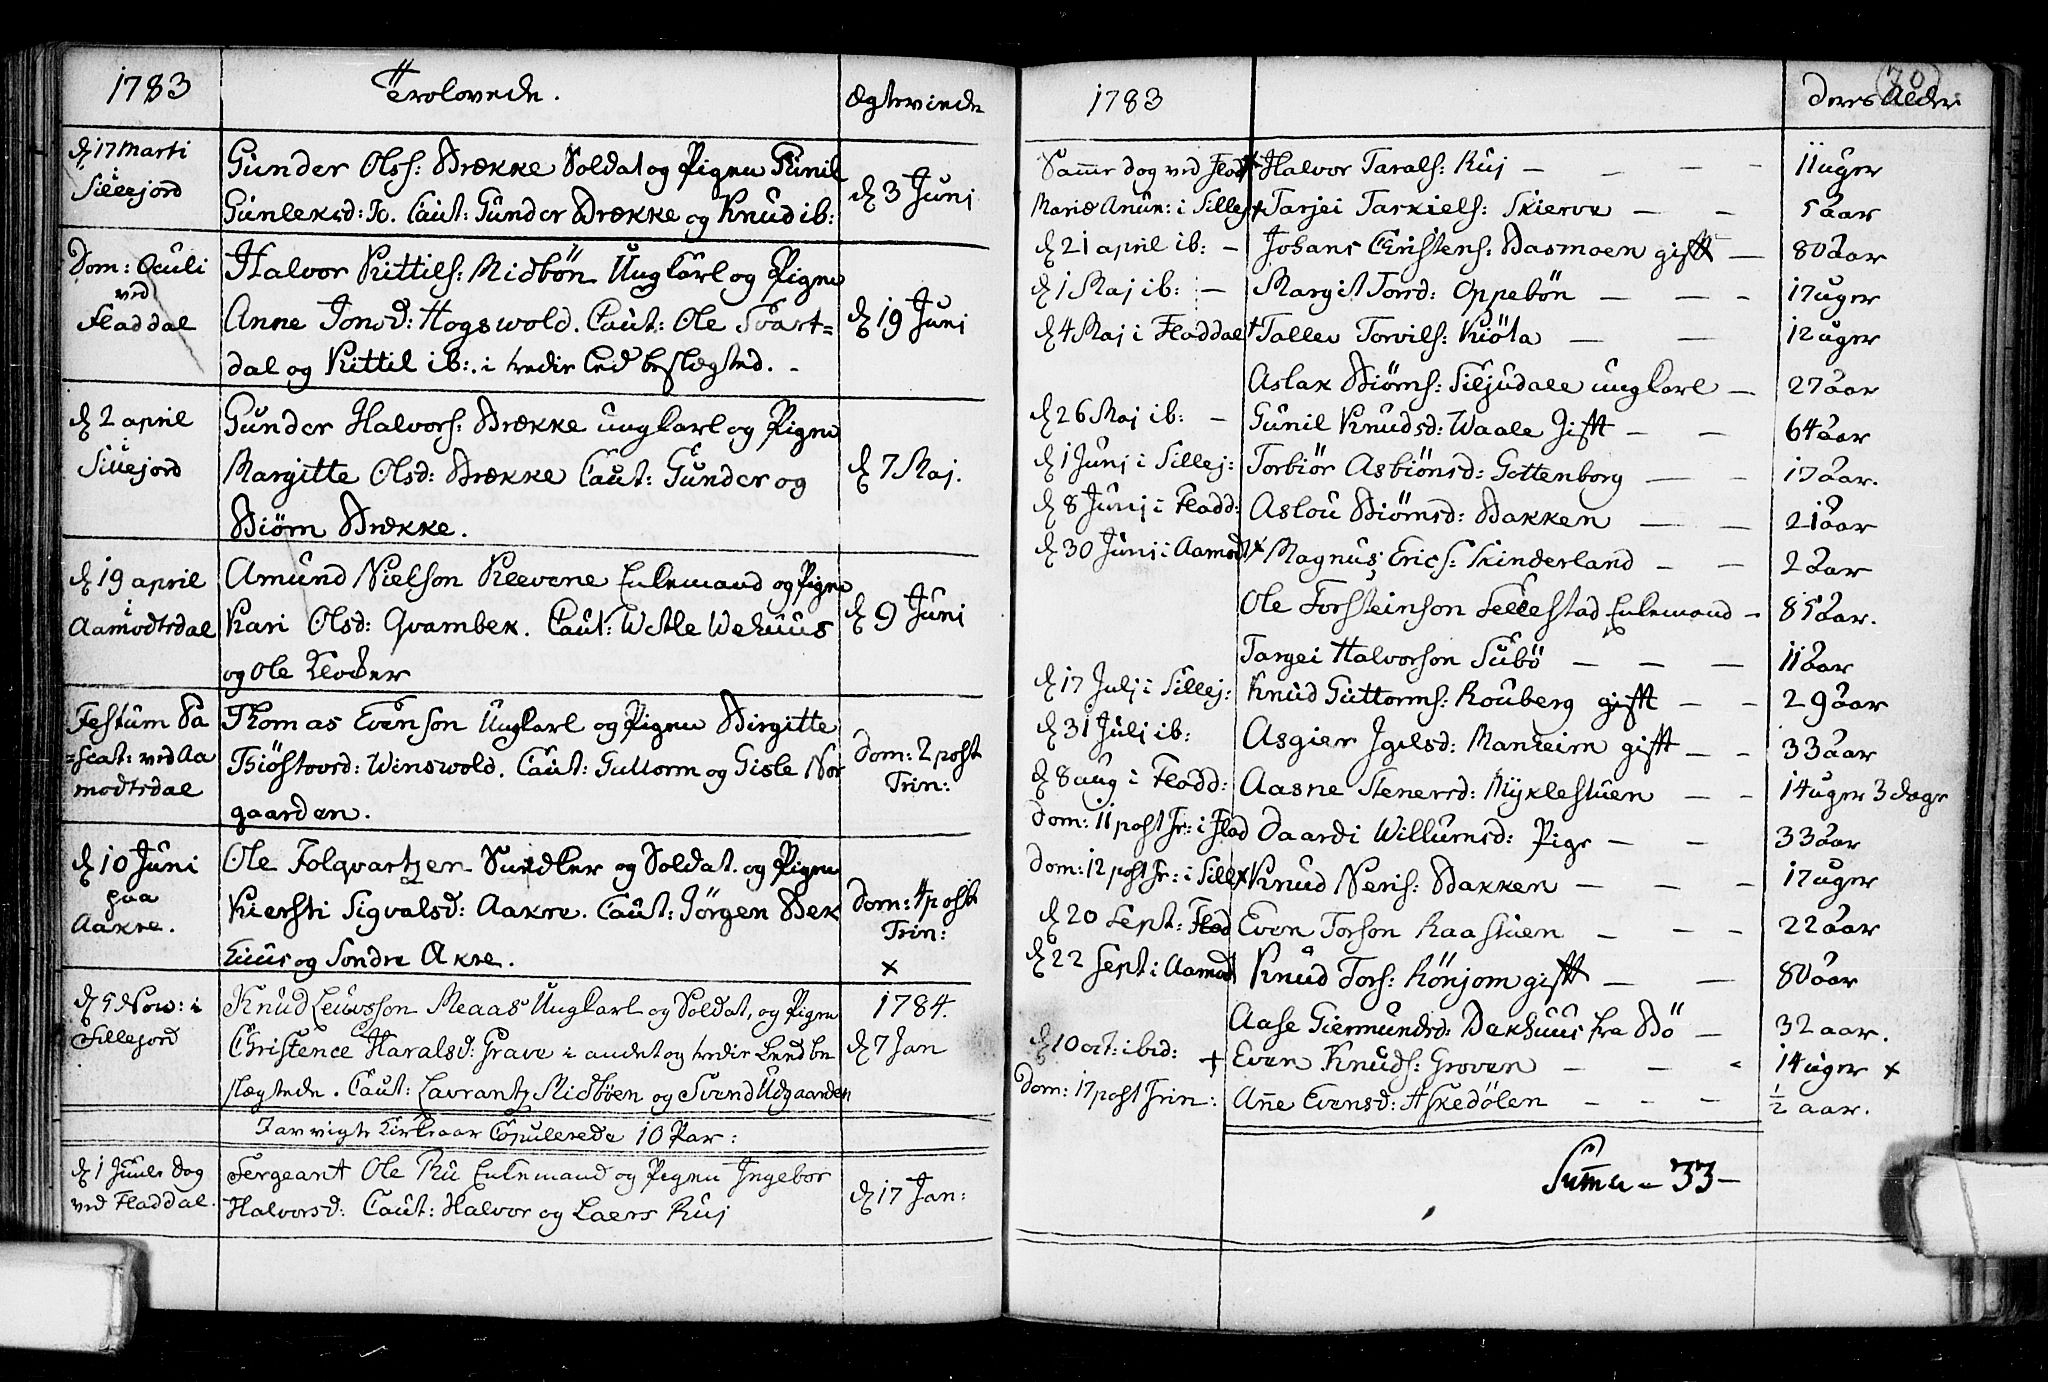 1783
Trolovede.
Ægteviede
d 17 Marti
i
Sillejord
Gunder Olss: Brække Soldat og Pigen Gunil
Gunleksd: Caut: Gunder Brække og Knud ib:
d 3 Junj
Dom: Oculi
ved
Fladdal
Halvor Kittils: Midbön Ungkarl og Pigen
Anne Jonsd: Hogswold. Caut: Ole Svart=
dal og Kittil ib:. i tredie Leed beslegted.
d 19 Junj
d 2 april
i
Sillejord
Gunder Halvors: Brække ungkarl og Pigen
Margitte Olsd: Brække Caut: Gunder og
Biörn Brække.
d 7 Maj.
d 19 april
i
Aamodtsdal
Amund Nielson Kleevene Enkemand og Pigen
Kari Olsd: Qvambek. Caut: Wetle Wehuus
og Ole
d 9 Juni
Festum Pa
=scat: ved Aa
modtsdal
Thomas Evenson Ungkarl og Pigen Birgitte
Tiöstovsd: Winswold. Caut: Guttorm og Gisle Nor
gaarden.
Dom: 2 post
Trin:
d 10 Juni
paa
Aakre.
Ole Folqvartzen Svedker og Soldat. og Pigen
Kiersti Sigvalsd: Aakre. Caut: Jörgen Bek
huus og Sondre Akre.
Dom: 4 post
Trin:
x
d 5 Nov: i
Sillejord
Knud Leuvsson Meaas Ungkarl og Soldat, og Pigen
Christence Haralsd: Grave i andet og tredie Leed be
slægtede. Caut: Lavrantz Midböen og Svend Udgaarden
1784.
d 7 Jan
Jarvigte Kirkeaar Copulerede 10 Par:
d 1 Juule dag
ved Fladdal.
Sergeant Ole Ru Enkemand og Pigen Ingebor
Halvorsd: Caut: Halvor og Laers Ruj
d 17 Jan:
1783
70
deres Alder
Samme dag ved Flad x Halvor Tarals: Ruj — — — 11 uger
Mariæ Anun: i Sillej + Tarjei Tarkiels: Skierve — — 5 aar
d 21 april ib: — Johans Christens: Basmoen gift — 80 aar
d 1 Maj ib: — Margit Torsd: Oppebön — — — 17 uger
d 4 Maj i Fladdal + Tallev Torvils: Kiöta — — 12 uger
Aslak Biörns: Siljudale ungkarl — 27 aar
d 26 Maj ib: — Gunil Knudsd: Waale Gift — — 64 aar
d 1 Junj i Sillej: Torbiör Asbiönsd: Gottenborg — — 17 aar.
d 8 Junj i Fladd: Aslou Biörnsd: Bakken — — 21 aar
d 30 Junj i Aamodt x Magnus Erics: Skinderland — — 2 aar
Ole Torsteinson Sellestad Enkemand — 85 aar.
Targei Halvorson Subö — — — 11 aar
d 17 Julj i Sillej: Knud Guttorms: Rouberg gift — — 29 aar
d 31 Julj ib: Asgier Igelsd: Manheim gift — — 33 aar
d 8 aug i Fladd: Aasne Stenersd: Myklestuen — — 14 uger 3 dage
Dom: 11 post Tr: i Flad Daardi Willumsd: Pige — — 33 aar
Dom: 12 post Tr: i Sille x Knud Neris: Bakken — — — 17 uger
d 20 Sept: Flad Even Torson Raastuen — — — 22 aar
d 22 Sept: i Aamodt Knud Tors: Rönjom gift — — 80 aar
Aase Giermundsd: Bekhuus fra Bö — 32 aar.
d 10 oct: ibid: + Even Knuds: Groven — — - 14 uger x
Dom: 17 post Trin: Añe Evensd: Askedölen — — — ½ aar.
Suma - 33 -